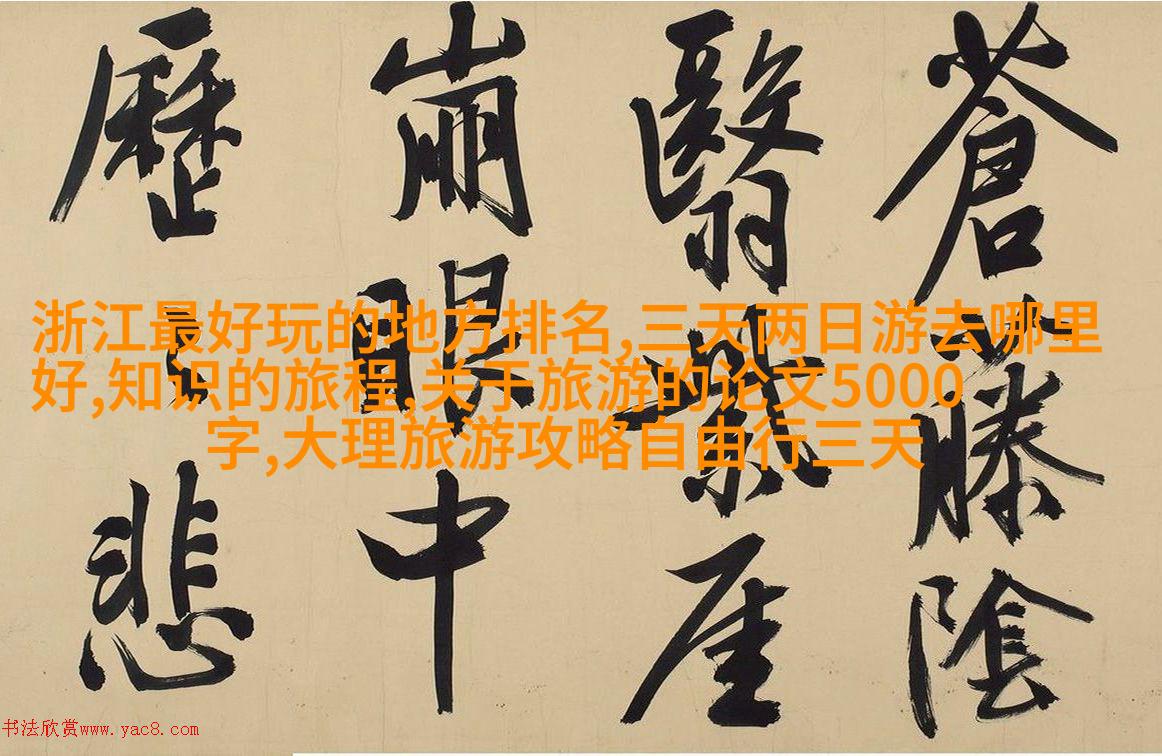 蒼藤陰
翳紫厓
崩眼中
歷悲
浙江最好玩的地方排名,三天两日游去哪里
好,知识的旅程,关于旅游的论文5000
字,大理旅游攻略自由行三天
书法欣赏www.yac8.com